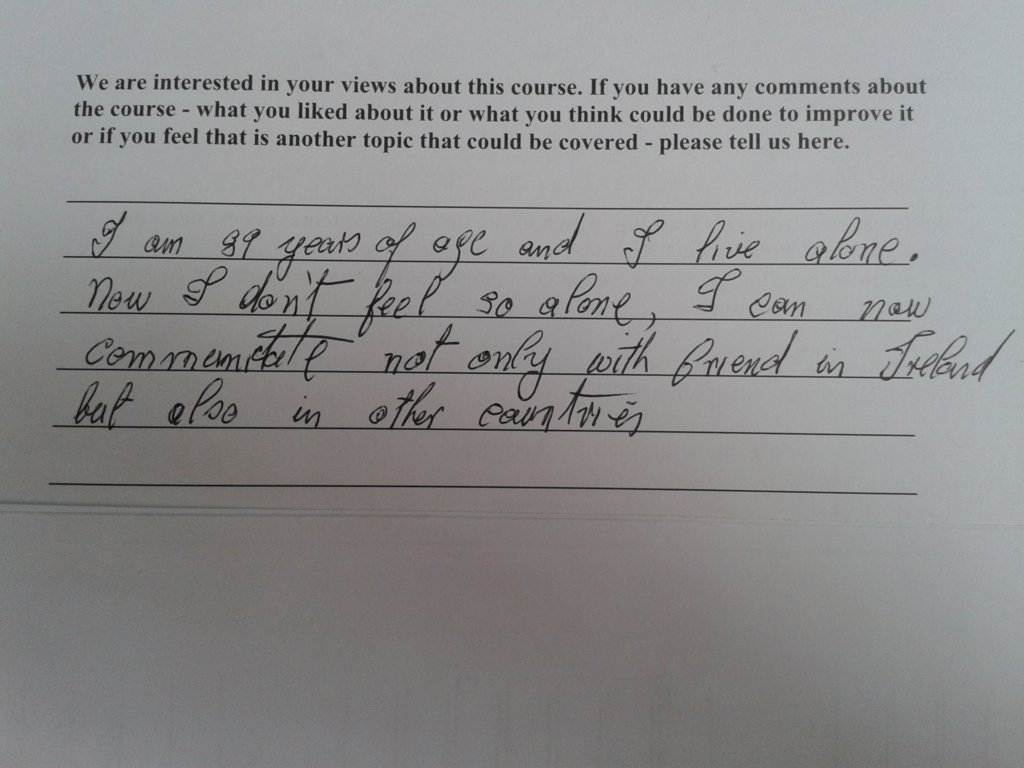 We are interested in your views about this course. If you have any comments about
the course - what you liked about it or what you think could be done to improve it
or if you feel that is another topic that could be covered - please tell us here.
I am 89 years of age and I live alone.
Now I don't feel so alone, I can now
not only with friend in Ireland
but also in other countries